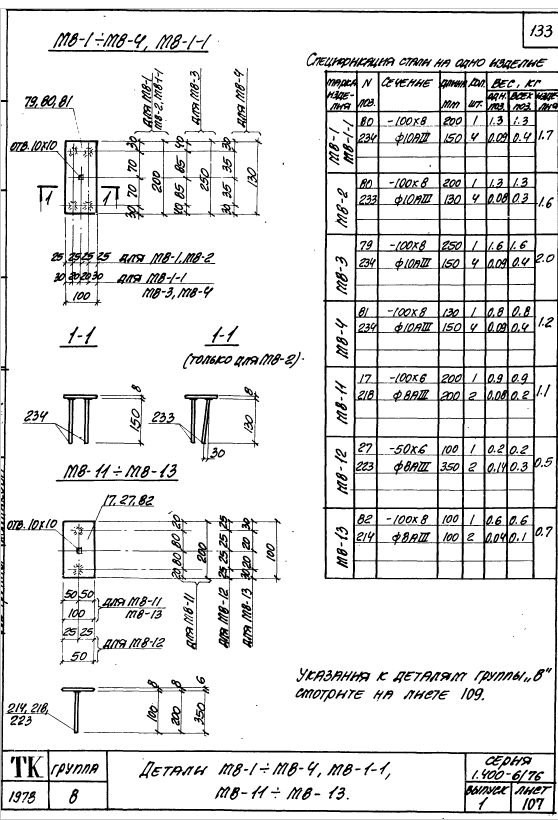 133
МВ-1÷МВ-4, МВ-1-1
79,80,81
отв. 10х10
для МВ-1
МВ-2, МВ-1-1
для МВ-3
для МВ-4
30 70 70 30
200
40 85 85 40
250
30 35 35 30
130
1 1
25 25 25 25 для МВ-1, МВ-2
30 20 20 30 для МВ-1-1
100 МВ-3, МВ-4
1-1
1-1
(только для МВ-2).
234
8
150
233
8
130
30
МВ-11÷МВ-13
17, 27, 82
отв. 10х10
20 80 80 20
200
25 25 25 25
30 20 20 30
100
для МВ-11
для МВ-12
для МВ-13
50 50 для МВ-11
100 МВ-13
25 25 для МВ-12
50
214, 218,
223
8 8 6
100 200 350
Спецификация стали на одно изделие
Марка изделия N поз. Сечение Длина мм Кол. шт. Вес, кг
одн. поз. всех поз. изделия
МВ-1 МВ-1-1 80 -100х8 200 1 1.3 1.3 1.7
234 ф10АIII 150 4 0.09 0.4
МВ-2 80 -100х8 200 1 1.3 1.3 1.6
233 ф10АIII 130 4 0.08 0.3
МВ-3 79 -100х8 250 1 1.6 1.6 2.0
234 ф10АIII 150 4 0.09 0.4
МВ-4 81 -100х8 130 1 0.8 0.8 1.2
234 ф10АIII 150 4 0.09 0.4
МВ-11 17 -100х6 200 1 0.9 0.9 1.1
218 ф8АIII 200 2 0.08 0.2
МВ-12 27 -50х6 100 1 0.2 0.2 0.5
223 ф8АIII 350 2 0.14 0.3
МВ-13 82 -100х8 100 1 0.6 0.6 0.7
214 ф8АIII 100 2 0.04 0.1
Указания к деталям группы „В"
смотрите на листе 109.
ТК группа
1978 8
Детали МВ-1÷МВ-4, МВ-1-1,
МВ-11÷МВ-13.
серия
1.400-6/76
выпуск лист
1 107